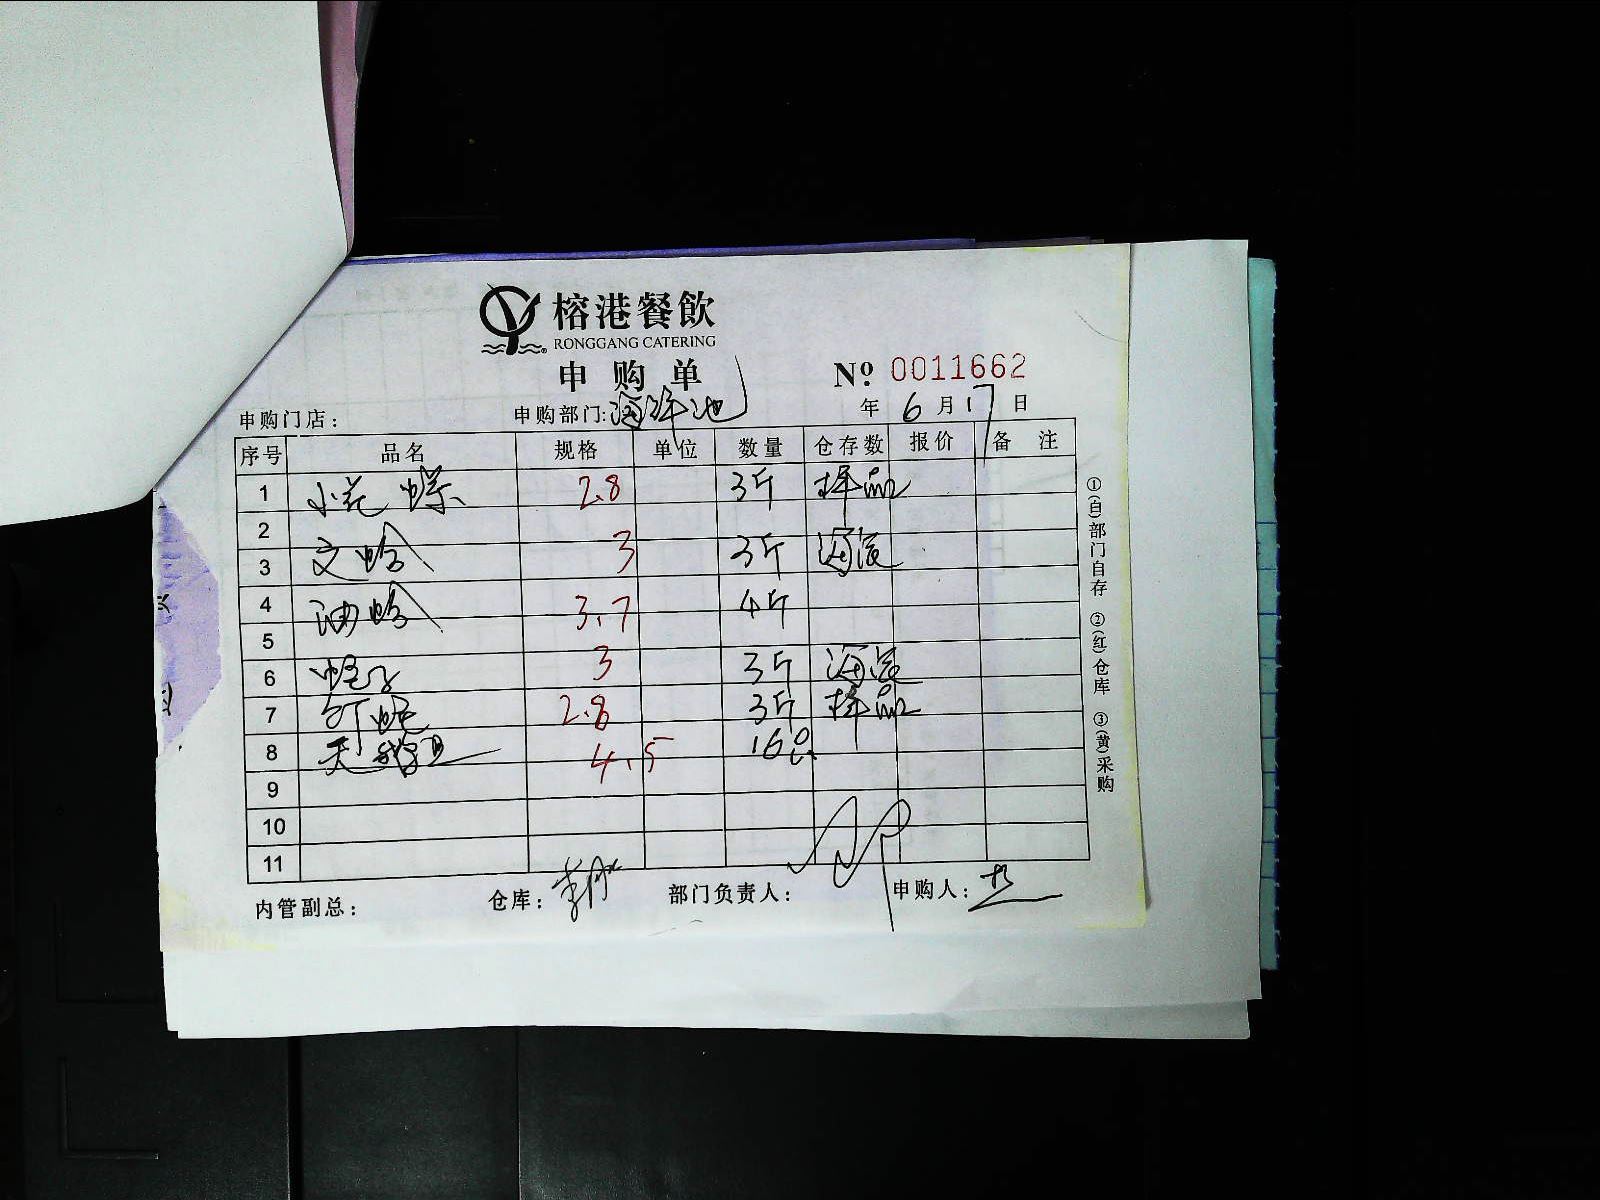 榕港餐飲
RONGGANG CATERING
申购单
No. 0011662
申购门店： 申购部门：海鲜池 年 6 月 17 日
序号 品名 规格 单位 数量 仓存数 报价 备注
1 小花螺 2.8 3斤 样品
2
3 文蛤 3 3斤
4 油蛤 3.7 4斤
5
6 蛏子 3 3斤
7 2.8 3斤 样品
8 天鹅 4.5 16只
9
10
11
内管副总： 仓库： 部门负责人： 申购人：
①(白)部门自存 ②(红)仓库 ③(黄)采购